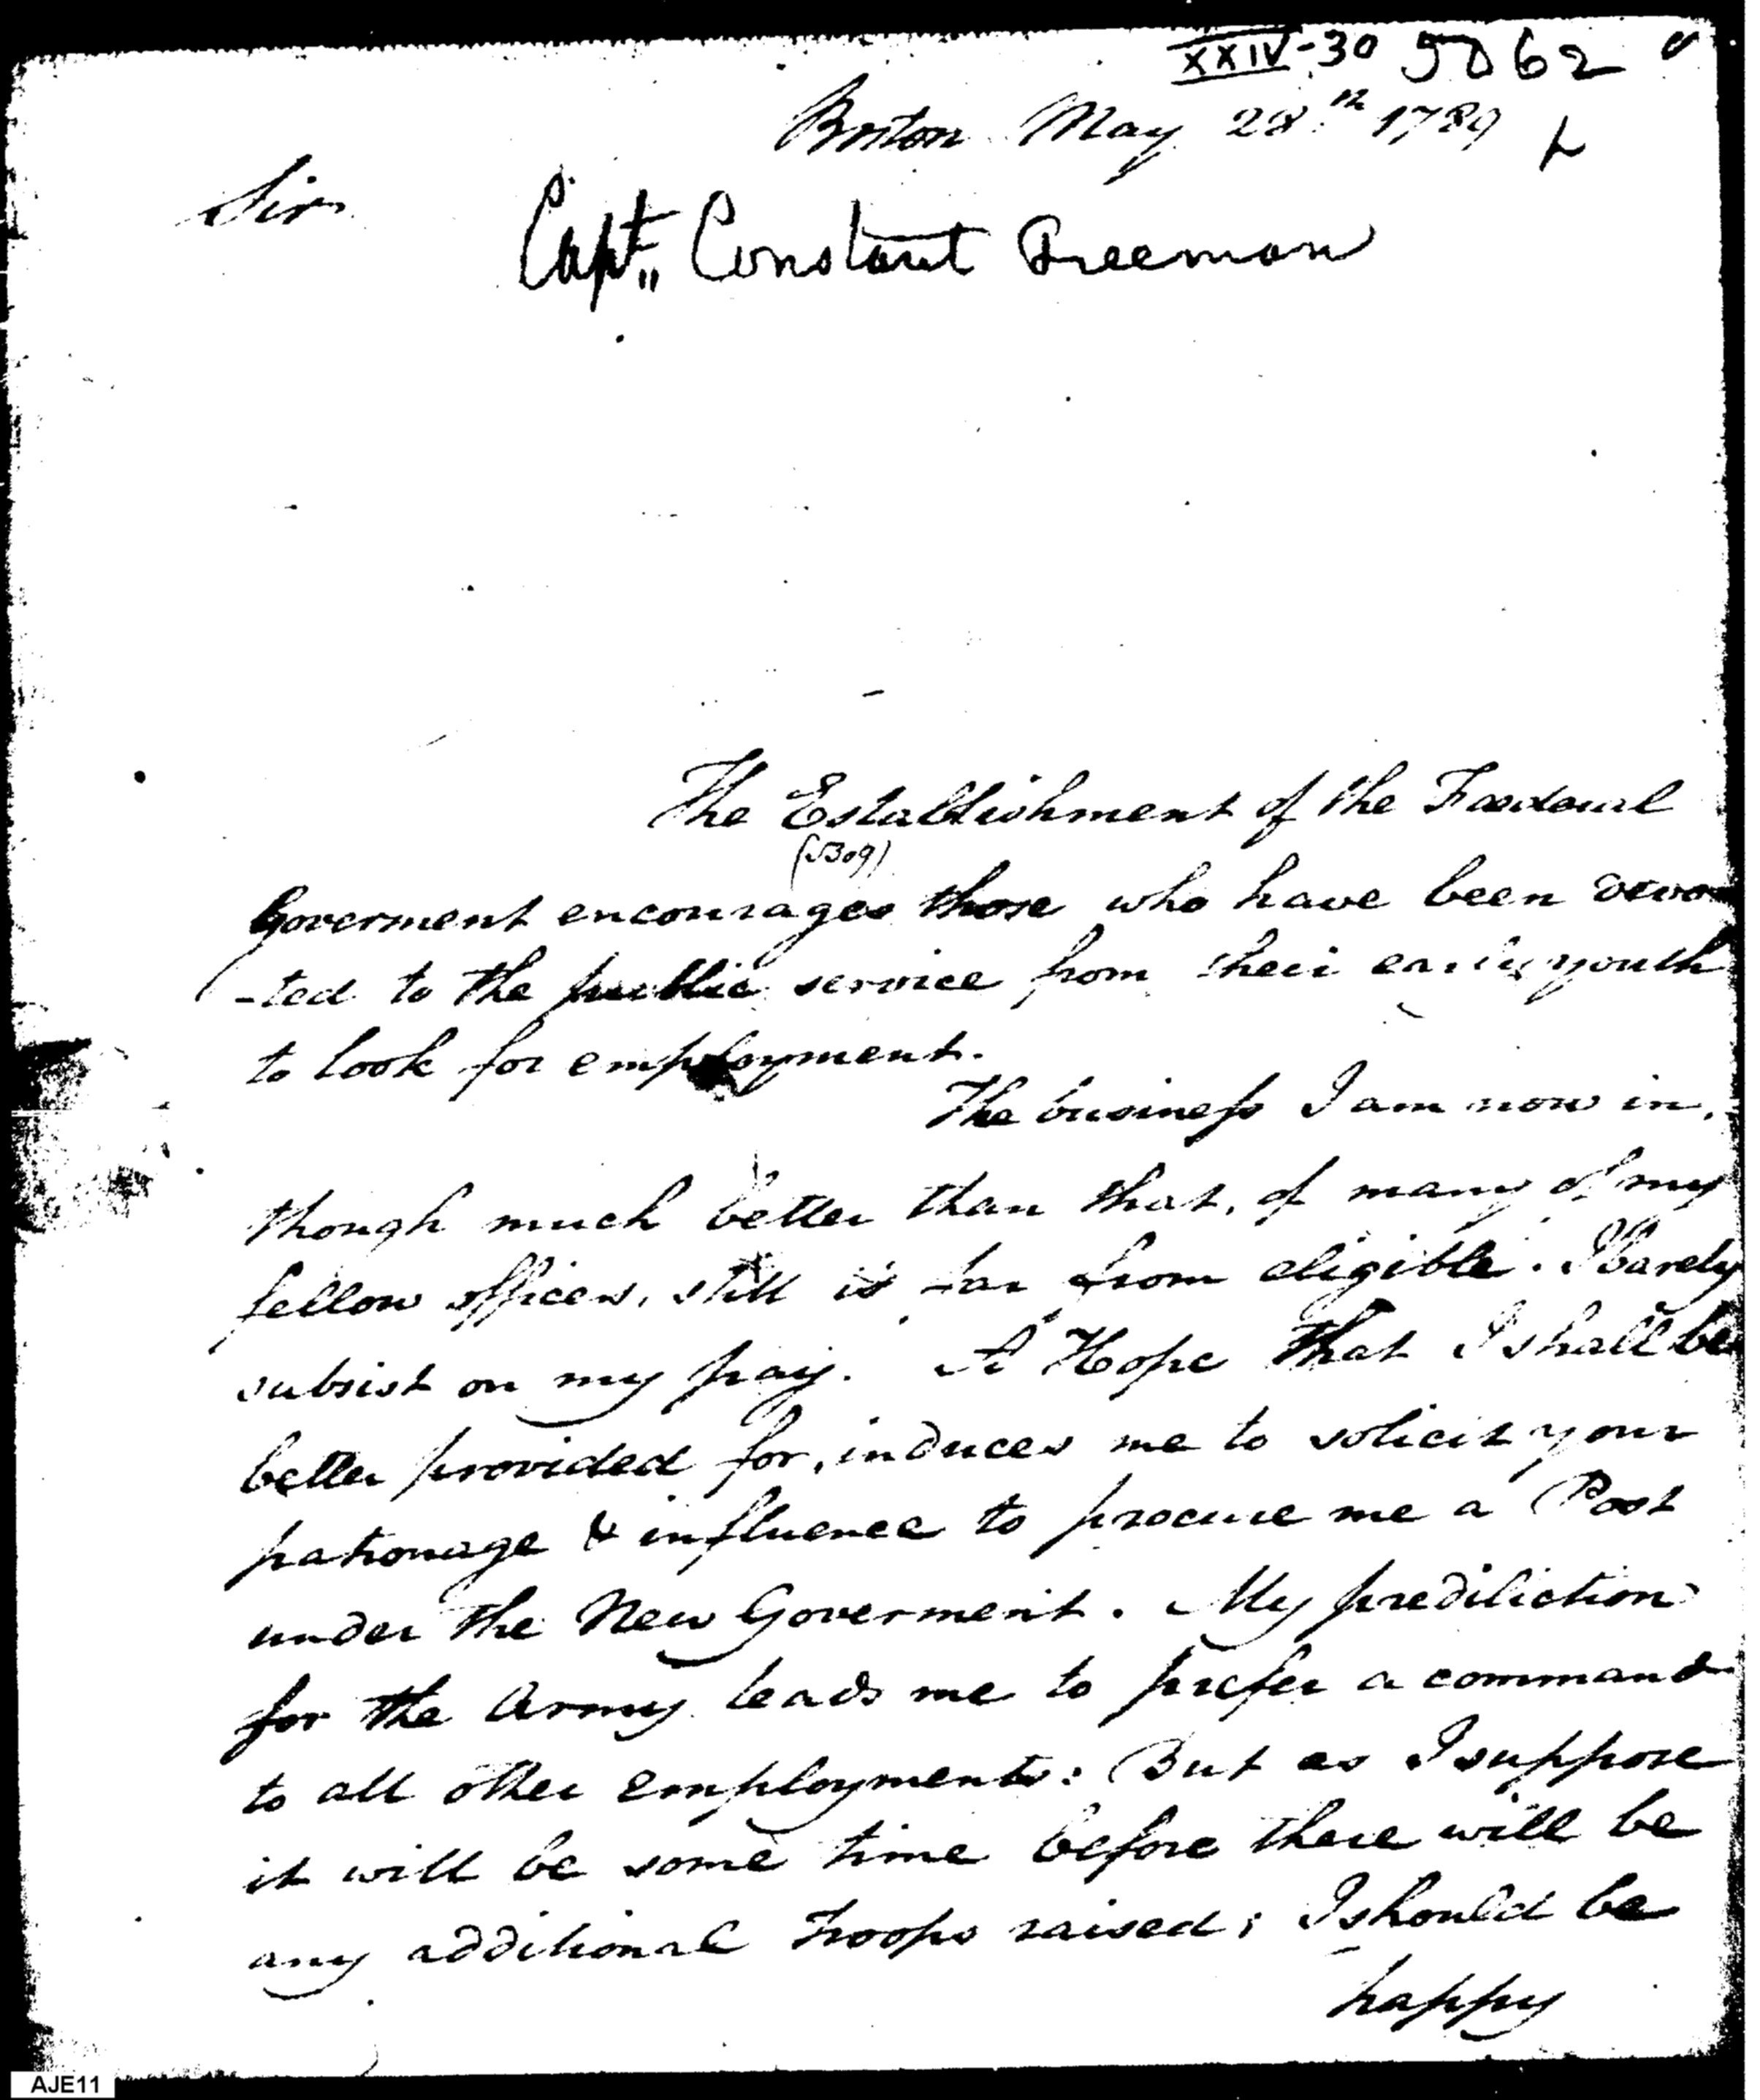 XXIV-30 5062
Boston May 28th 1789
Sir
Capt,, Constant Freeman
The Establishment of the Foederal
(5309)
Goverment encourages those who have been devo
-ted to the public service from their early youth
to look for employment.
The business I am now in,
though much better than that, of many of my
fellow officers, still is far from eligible. I barely
subsist on my pay. A Hope that I shall be
better provided for, induces me to solicit your
patronage & influence to procure me a Post
under the New Goverment. My prediliction
for the Army leads me to prefer a command
to all other employments: But as I suppose
it will be some time before there will be
any additional Troops raised; I should be
happy
AJE11